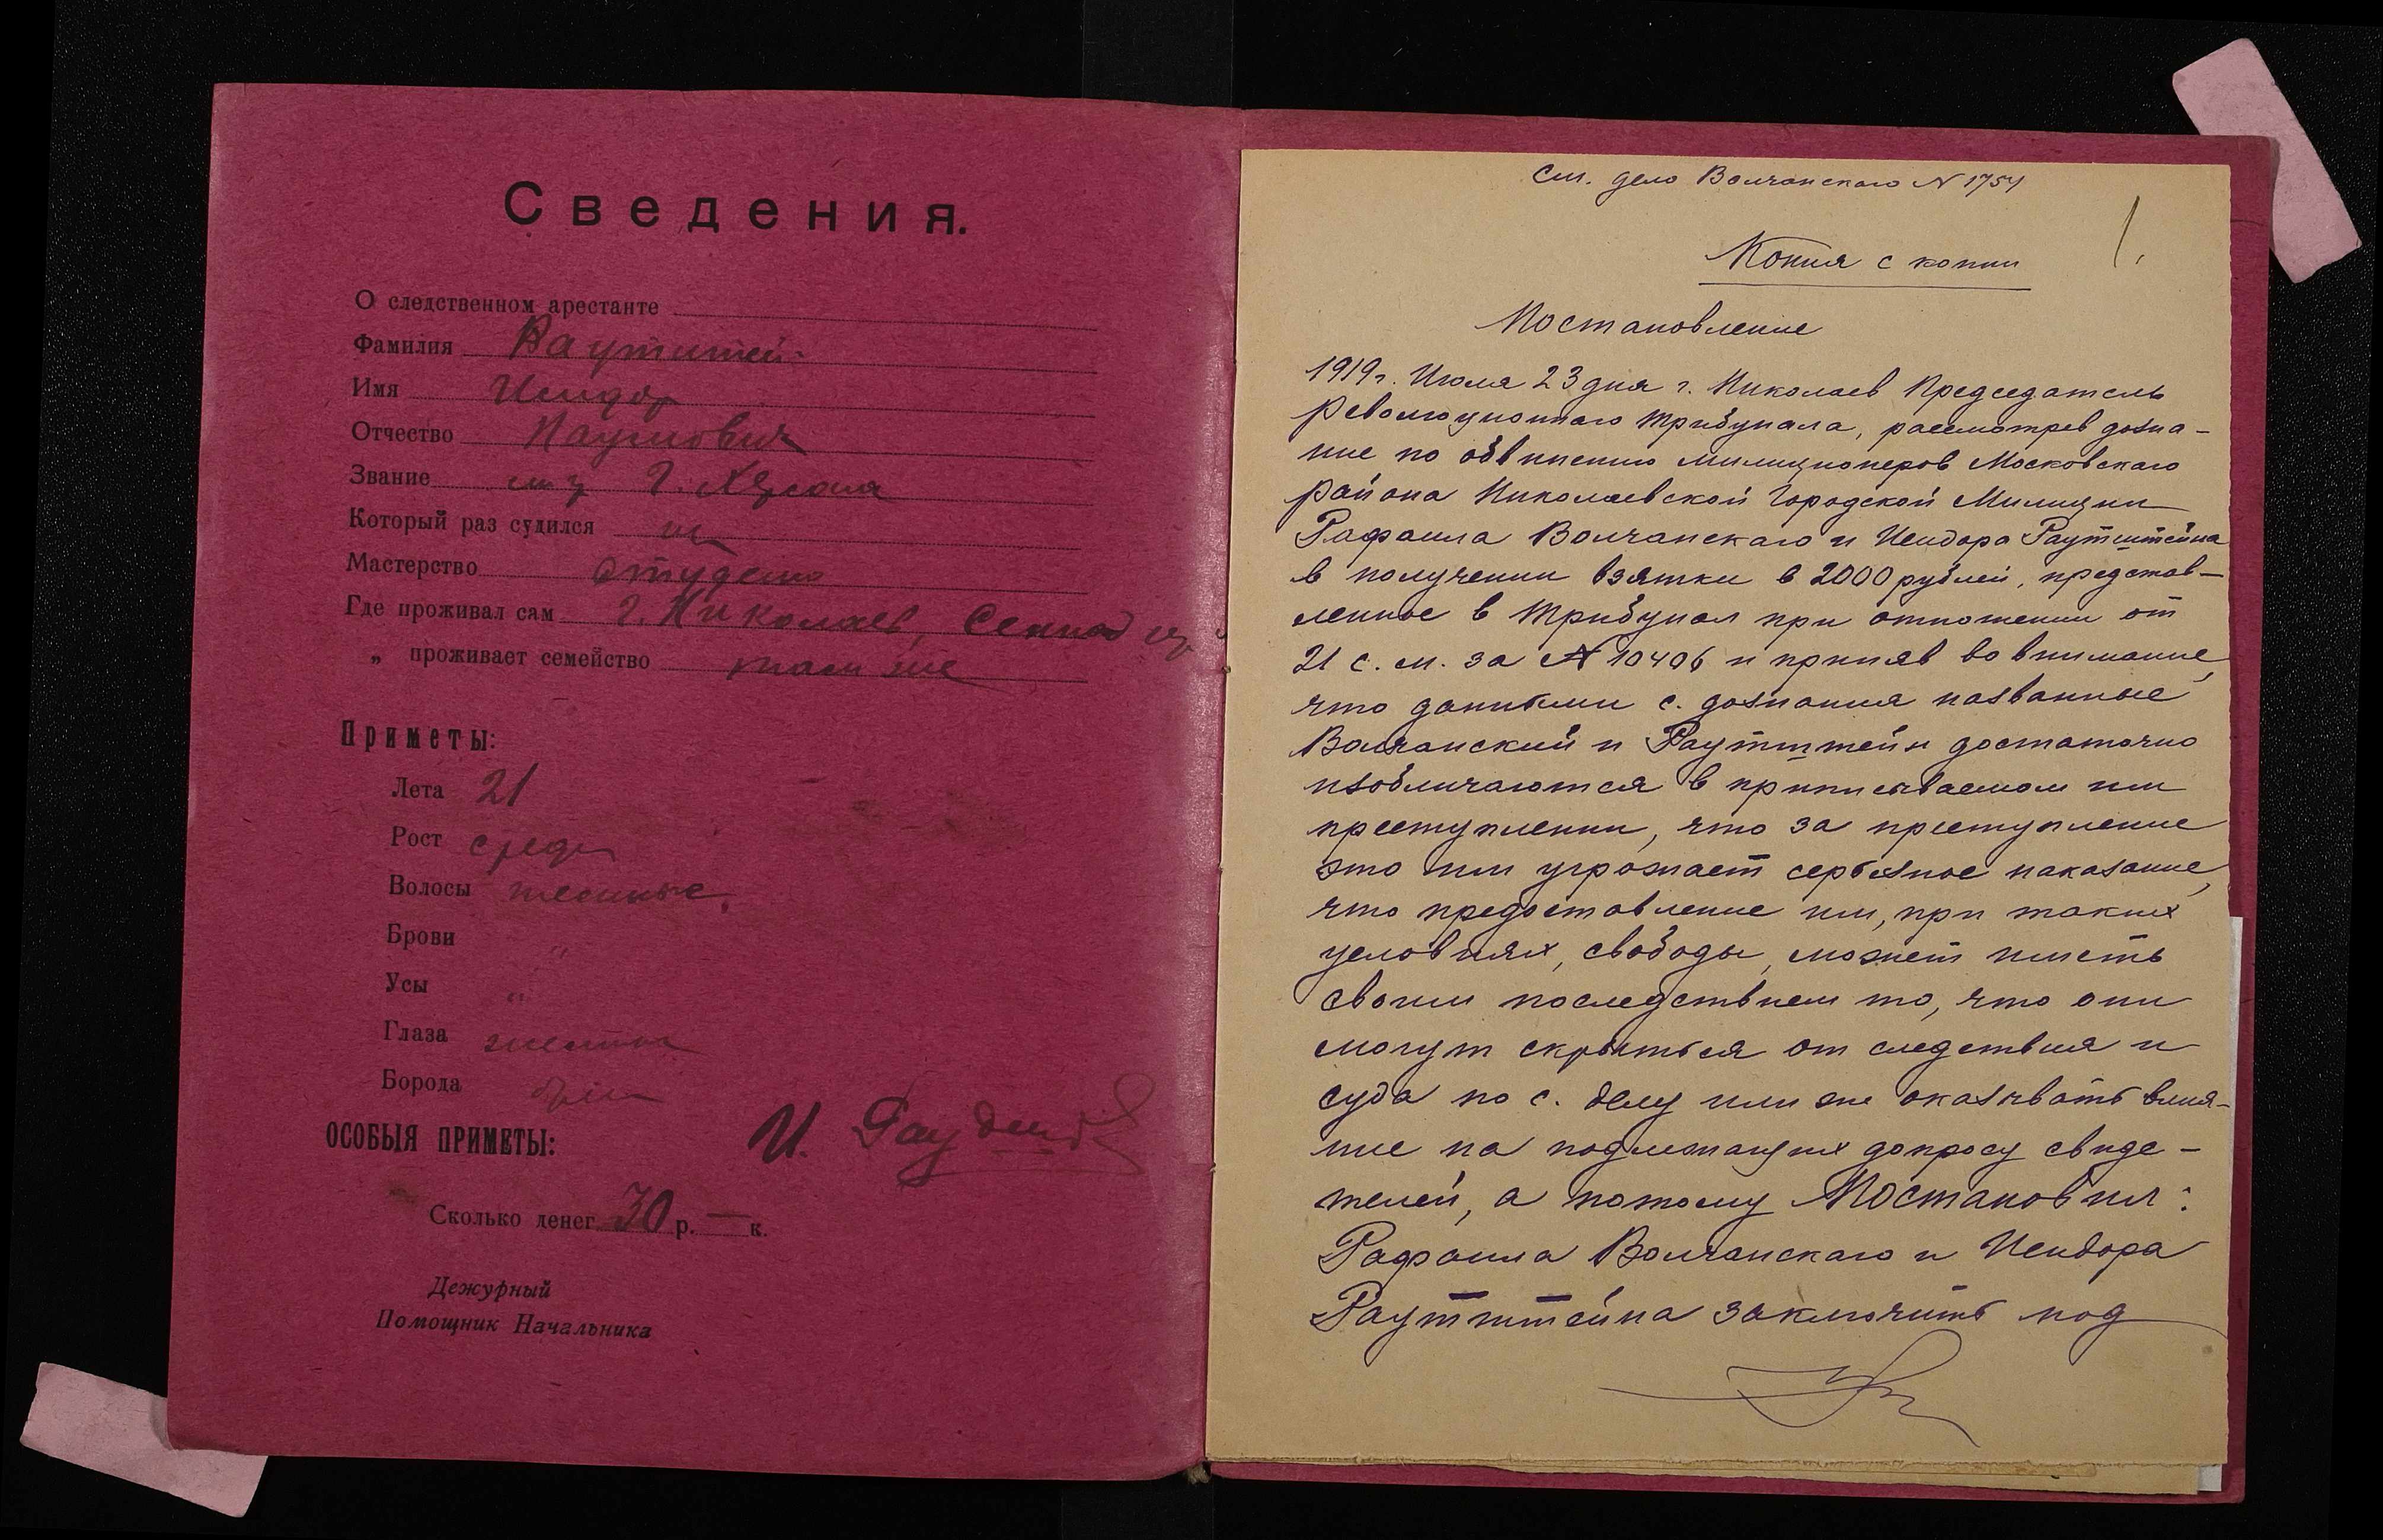 Сведения.
О следственном арестанте
Фамилия Раутштей
Имя Исидор
Отчество Наумович
Звание г. Херсона
Который раз судился
Мастерство студент
Где проживал сам г. Николаев,
„ проживает семейство там же
Приметы:
Лета 21
Рост средн
Волосы темные
Брови "
Усы "
Глаза
Борода
ОСОБЫЯ ПРИМЕТЫ:
И.
Сколько денег 30 р. — к.
Дежурный
Помощник Начальника
См. дело Волчанскаго N 1754
1.
Копия с копии
Постановление
1919 г. Июля 23 дня г. Николаев Председатель
Революционнаго Трибунала, рассмотрев дозна-
ние по обвинению милиционеров Московскаго
района Николаевской Городской Милиции
Рафаила Волчанскаго и Исидора Раутштейна
в получении взятки в 2000 рублей, представ-
ленное в Трибунал при отношении от
21 с. м. за N 10406 и приняв во внимание,
что данными с. дознания названные
Волчанский и Раутштейн достаточно
изобличаются в приписываемом им
преступлении, что за преступление
это им угрожает серьезное наказание,
что предоставление им, при таких
условиях, свободы, может иметь
своим последствием то, что они
могут скрыться от следствия и
суда по с. делу или же оказывать влия-
ние на подлежащих допросу свиде-
телей, а потому Постановил:
Рафаила Волчанскаго и Исидора
Раутштейна заключить под